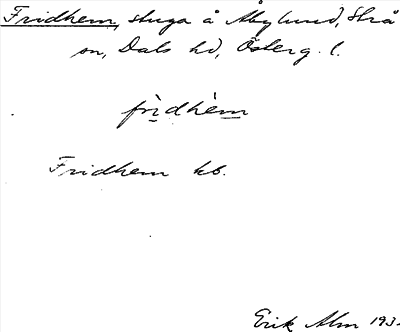 Fridhem, stuga å Åbylund, Strå
sn, Dals hd, Österg. l.
frìdhèm
Fridhem kb.
Erik Alm 193.